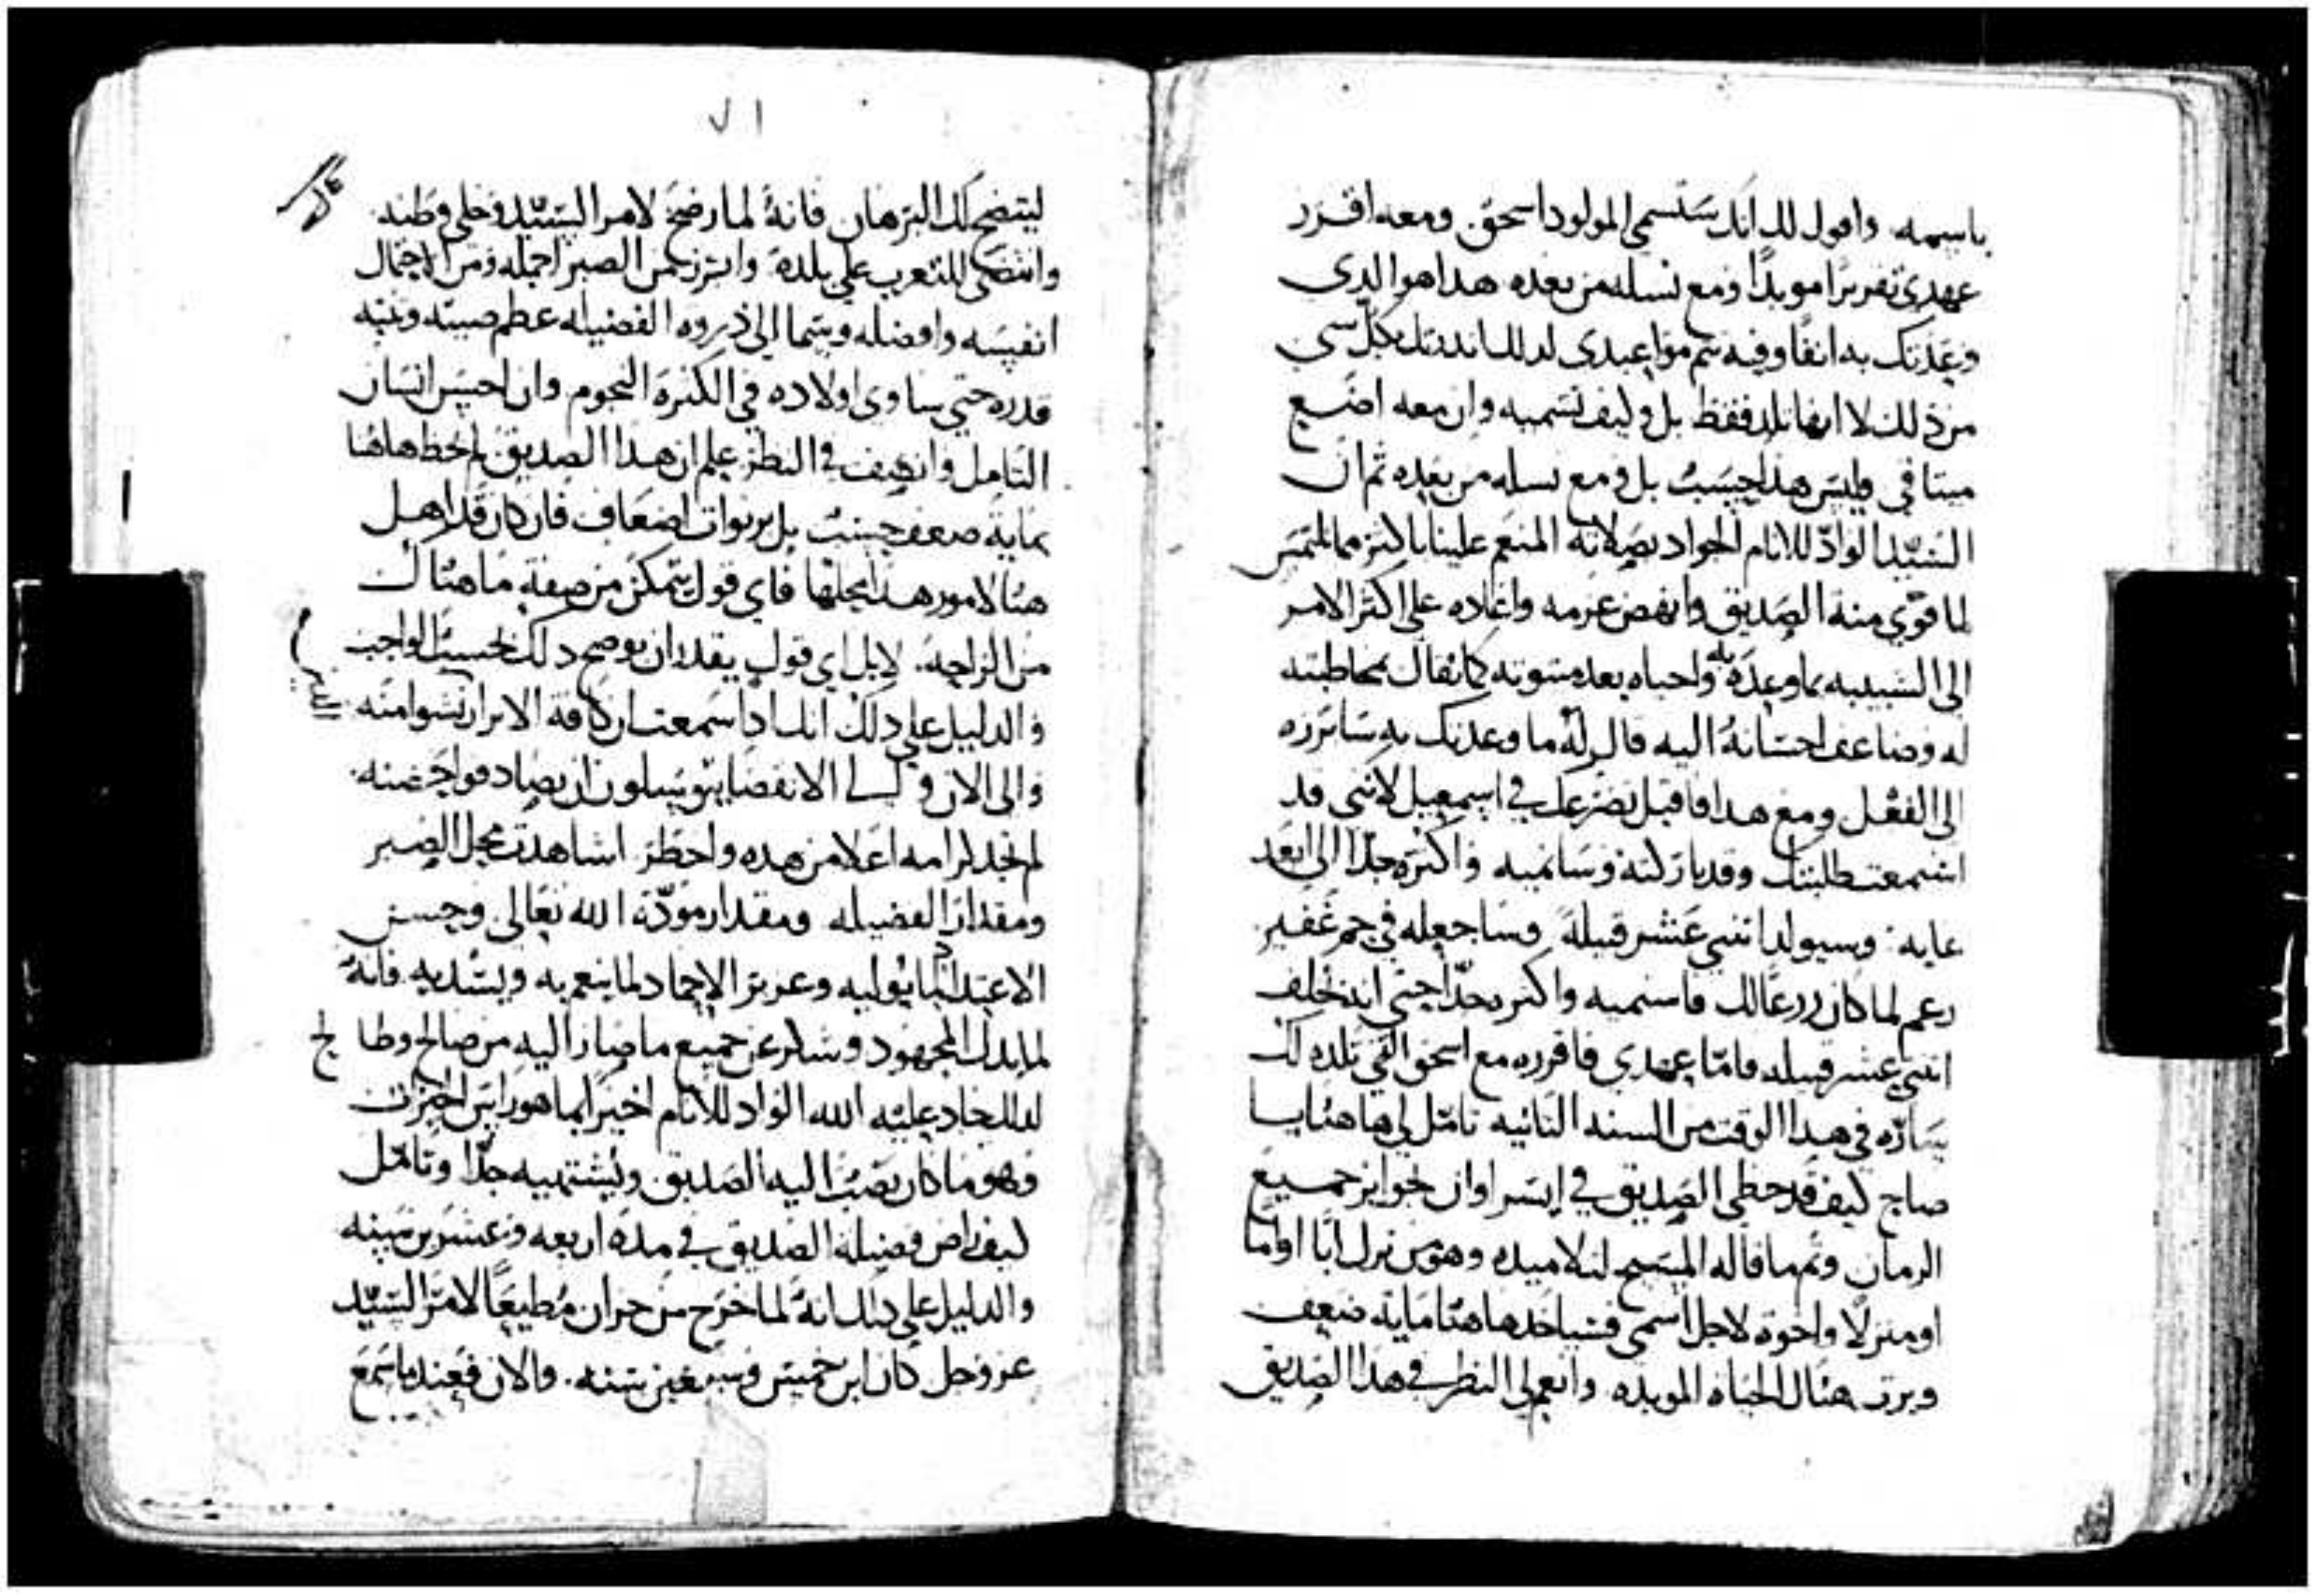 باسمه واقول لك انك ستسمي المولود اسحق ومعه اقرر
عهدي تقريرًا موبدًا ومع نسله من بعده هدا هو الدي
وعدتك به انفًا وفيه تتم مواعيدي لدلك اندرتك بكل شي
من ذلك لا انها تلد فقط بل وكيف تسميه وان معه اضع
ميثاقي وليس هدا حسب بل ومع نسله من بعده ثم ان
السيد الوادّ للانام الجواد بصلاته المنعم علينا باكثر مما نلتمس
لما قوي منة الصديق وانهض عزمه واعاده على اكثر الامر
الى الشبيبه بما وعده به واحياه بعد موته كما يقال بمخاطبته
له وضاعف احسانهُ اليه قال لهُ ما وعدتك به سابرزه
الى الفعل ومع هدا فاقبل تضرعك في اسمعيل لانني قد
استمعت طلبتك وقد باركته وسانميه واكثره جدًا الى ابعد
غايه وسيولد اثني عشر قبيلة وساجعله في جم غفير
زعم لما كان زرعًا لك فاسنميه واكثره جدًا حتى انه يخلف
اثني عشر قبيله فامّا عهدي فاقرره مع اسحق الدي تلده لك
سارّه في هدا الوقت من السنه الثانيه تامّل لي هاهنا يا
صاح كيف قد حظي الصديق في ايسر اوان بجوايز جميع
الزمان وتم ما قاله المسيح لتلاميده وهو من ترك ابًا او امًا
او منزلًا واخوة لاجل اسمي فسياخدها هنا مايه ضعف
ويرث هناك الحياه الموبده وانعم لي النظر في هدا الصديق
٧١
ليتضح لك البرهان فانهُ لما رضخ لامر السيد وخلى وطنه
وانتضى للتغرب على بلده وابرز من الصبر اجمله ومن الاحتمال
انفسه وافضله وسما الى ذروه الفضيله عظم صيته ونبه
قدره حتى ساوى اولاده في الكثرة النجوم وان احسن انسان
التامل وانصف في النظر علم ان هدا الصديق لم يحظ هاهنا
بماية ضعف حسب بل بربوات اضعاف فان كان قد اهل
هنا لامور هدا محلها فاي قول يتمكن من صفة ما هناك
من الراحه لا بل اي قول يقدر ان يوضح دلك بحسب الواجب
والدليل على دلك انك ادا سمعت ان كافة الابرار نشوا منه
والى الان والى الانقضا يتوسلون ان يصادفوا حضنه
لم تجد كرامه اعلا من هده واحظر اشاهدت محل الصبر
ومقدار الفضيله ومقدار مودّة الله تعالى وحسن
الاعتداد بما يوليه وعزيز الاحماد لما ينعم به ويسديه فانهُ
لما بدل المجهود وشكر عن جميع ما صار اليه من صالح وطالح
لدلك جاد عليه الله الوادّ للانام اخيرًا بما هو راس الخيرات
وهو ما كان يصبُ اليه الصديق ويشتهيه جدًا وتامّل
كيف راض فضيله الصديق في مدة اربعه وعشرين سنه
والدليل على دلك انهُ لما خرج من حران مُطيعًا لامر السيد
عز وجل كان ابن خمس وسبعين سنه والان فعند ما سمع